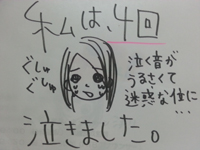 私は、4回
ぐしゅ
ぐしゅ
泣く音が
うるさくて
迷惑な位に
…
泣きました。